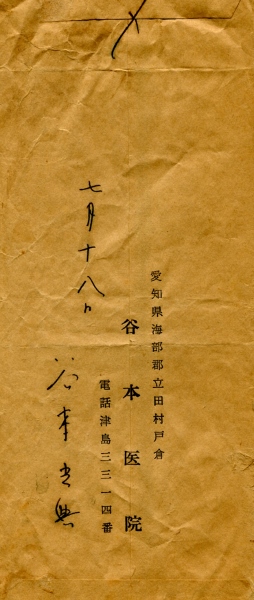 愛知県海部郡立田村戸倉
谷本医院
電話津島三三一四番
七月十八日
谷本